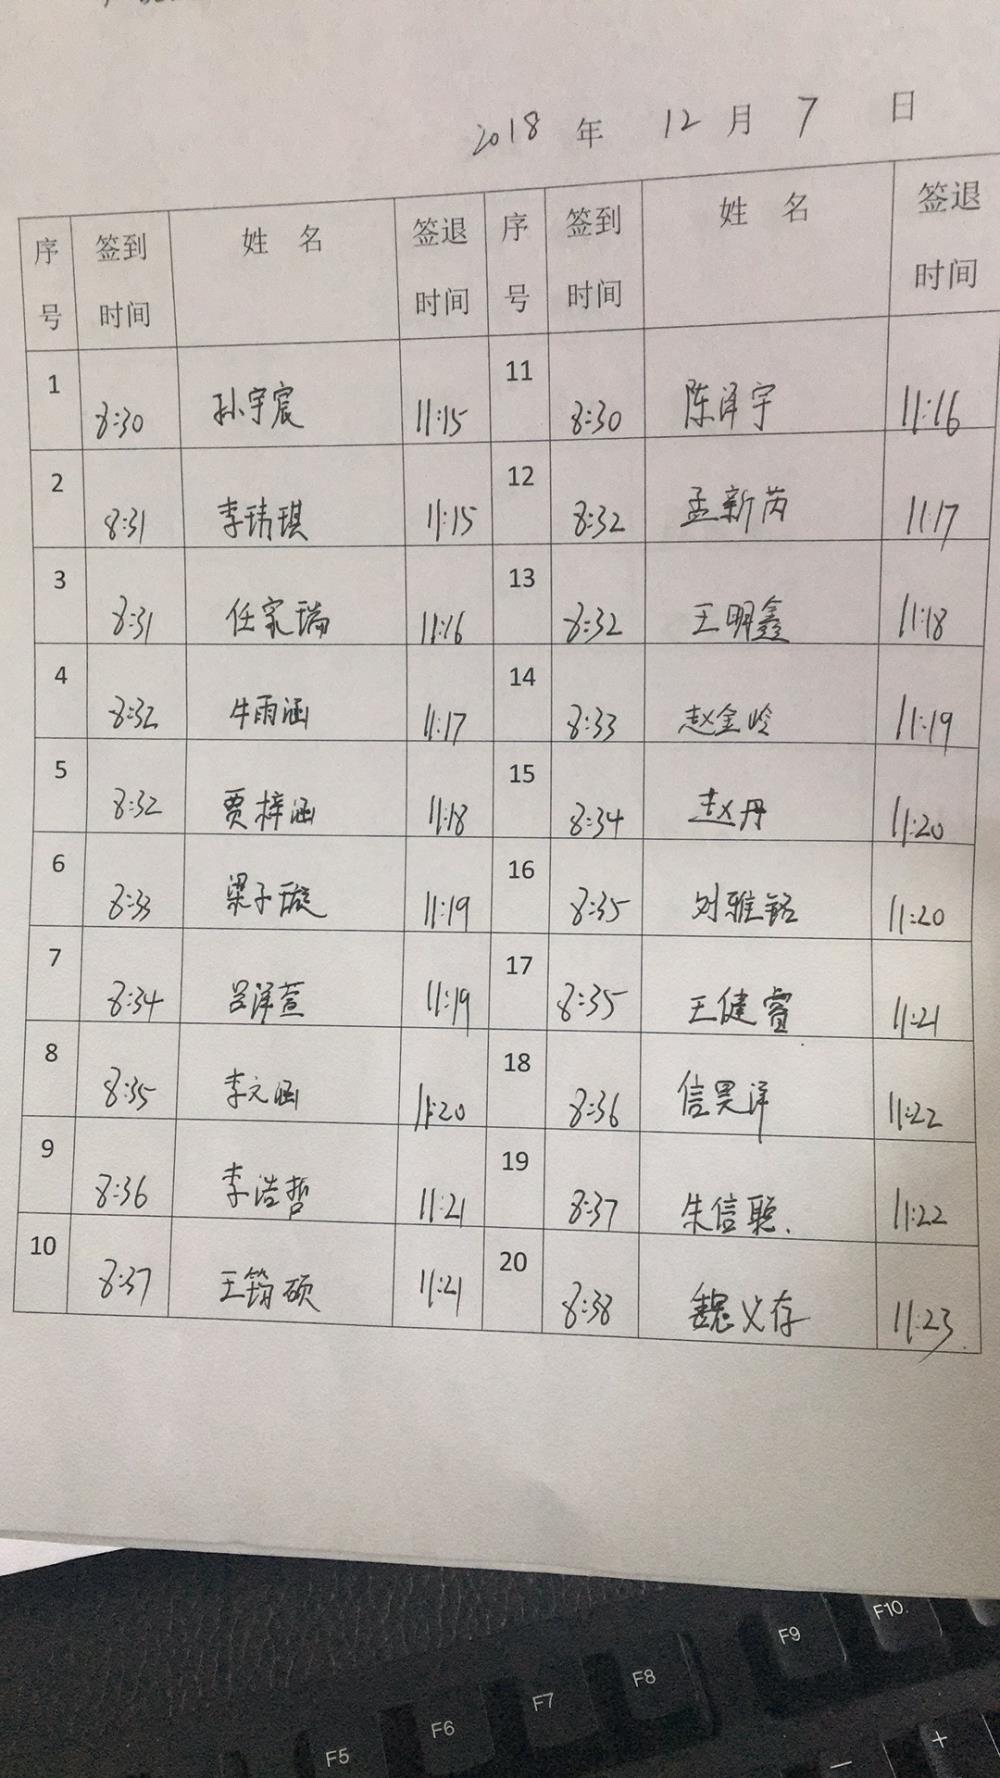 2018 年 12 月 7 日
序号 签到时间 姓 名 签退时间 序号 签到时间 姓 名 签退时间
1 8:30 孙宇宸 11:15 11 8:30 陈泽宇 11:16
2 8:31 李玮琪 11:15 12 8:32 孟新芮 11:17
3 8:31 任家瑞 11:16 13 8:32 王明鑫 11:18
4 8:32 牛雨涵 11:17 14 8:33 赵金岭 11:19
5 8:32 贾梓涵 11:18 15 8:34 赵丹 11:20
6 8:33 梁子璇 11:19 16 8:35 刘雅铭 11:20
7 8:34 吕泽萱 11:19 17 8:35 王健睿 11:21
8 8:35 李文涵 11:20 18 8:36 信昊洋 11:22
9 8:36 李浩哲 11:21 19 8:37 朱信聪. 11:22
10 8:37 王筠硕 11:21 20 8:38 魏义存 11:23.
F5 F6 F7 F8 F9 F10
- +